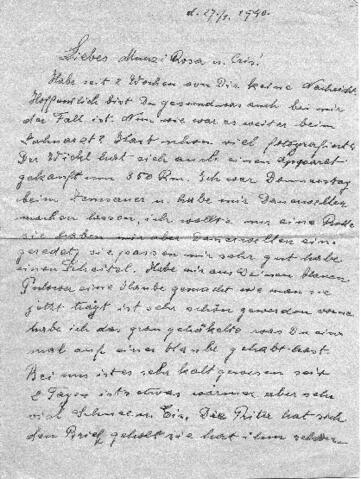 d. 27./1. 1940.
Liebes Munzi Rosa u. Cris!
Habe seit 2 Wochen von Dir keine Nachricht
Hoffentlich bist Du gesund was auch bei mir
der Fall ist. Nun wie war es weiter beim
Zahnarzt? Hast schon viel fotografiert?
Der Wickl hat sich auch einen Apparat
gekauft um 350 Rm. Ich war Donnerstag
beim u. habe mir Dauerwellen
machen lassen, ich wollte nur eine
sie haben mir aber Dauerwellen ein
geredet, sie passen mir sehr gut habe
einen Scheitel. Habe mir aus Deinen blauen
Pulover eine Haube gemacht wie man sie
jetzt trägt ist sehr schön geworden vorne
habe ich das grau gehäkelte was Du ein
mal auf einer blaube gehabt hast.
Bei uns ist es sehr kalt gewesen seit
2 Tagen ists etwas wärmer aber sehr
viel Schnee u. Eis. Die hat sich
den Brief geholt sie hat ihm schon